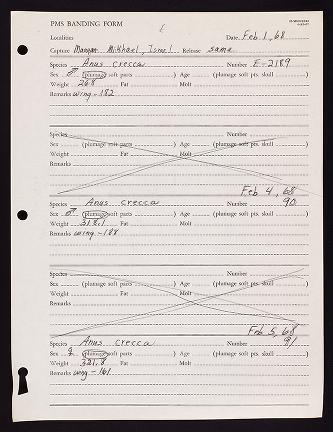 PMS BANDING FORM
Localities Date Feb 1, 68
Capture Maagan Mikhael, Israel Release same
Species Anus crecca Number E-2189
Sex ♂ (plumage soft parts) Age (plumage soft pts. skull)
Weight 268 Fat Molt
Remarks wing - 182
Species Number
Sex (plumage soft parts) Age (plumage soft pts. skull)
Weight Fat Molt
Remarks
Feb 4, 68
Species Anus crecca Number 90
Sex ♂ (plumage soft parts) Age (plumage soft pts. skull)
Weight 318.1 Fat Molt
Remarks wing - 188
Species Number
Sex (plumage soft parts) Age (plumage soft pts. skull)
Weight Fat Molt
Remarks
Feb 5, 68
Species Anus crecca Number 91
Sex ♀ (plumage soft parts) Age (plumage soft pts. skull)
Weight 321.8 Fat Molt
Remarks wing - 161